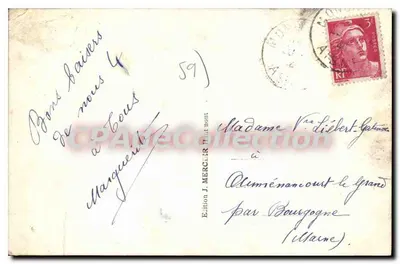 Bons baisers
de nous 4
à Tous
Marguerite
59)
Edition J. MERCIER
3F
RF
Madame Vve Liébert
à
Auménancourt le Grand
par Bourgogne
(Marne)
CPA
COLLECTION